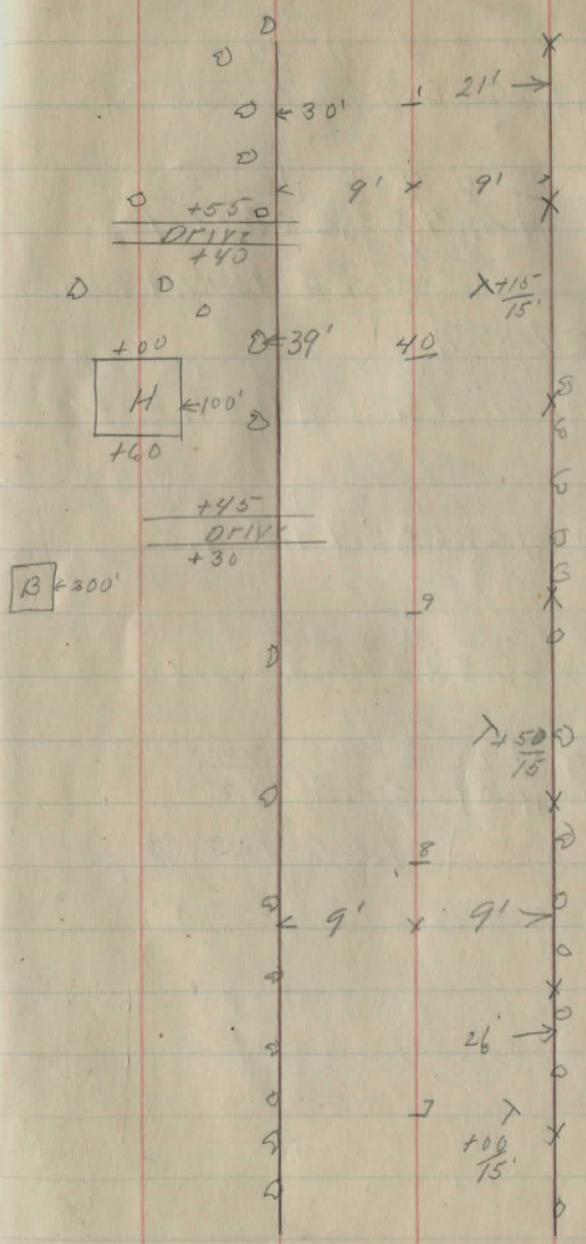 21'
30' 1
9' 9'
+55
Drive
+40
+15
15'
+00 39' 40
H 100'
+60
+45
Drive
+30
B 300'
9
+50
15
8
9' 9'
26'
7
+00
15'